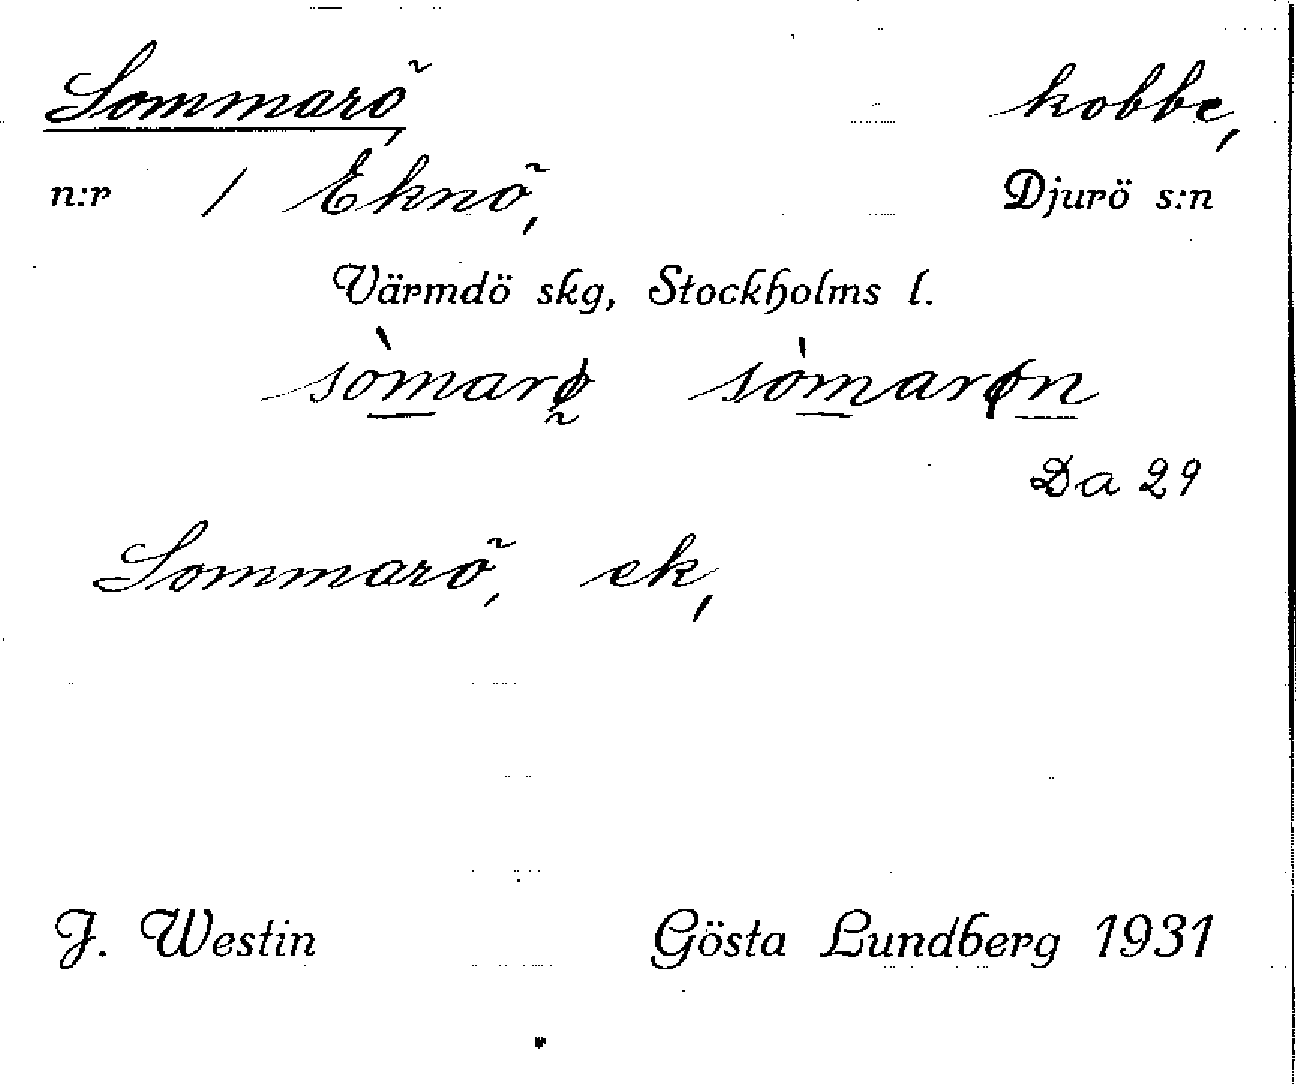 Sommarö, kobbe,
n:r / Eknö, Djurö s:n
Värmdö skg, Stockholms l.
sòmarø sòmarøn
Da 29
Sommarö, ek,
J. Westin Gösta Lundberg 1931